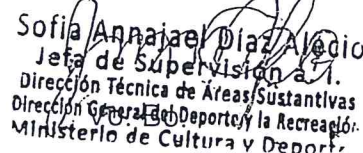 Sofia Annajael Díaz Alecio
Jefa de Supervisión a. i.
Dirección Técnica de Áreas Sustantivas
Dirección General del Deporte y la Recreación
Vo. Bo.
Ministerio de Cultura y Deporte